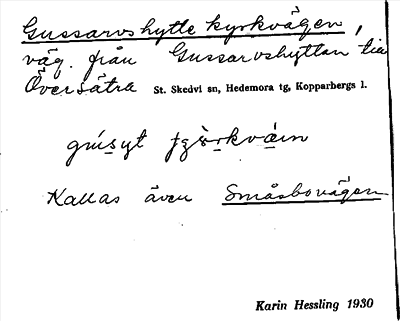 Gussarvshytte kyrkvägen,
väg. från Gussarvshyttan till
Översätra St. Skedvi sn, Hedemora tg, Kopparbergs l.
Kallas även Småsbovägen
Karin Hessling 1930